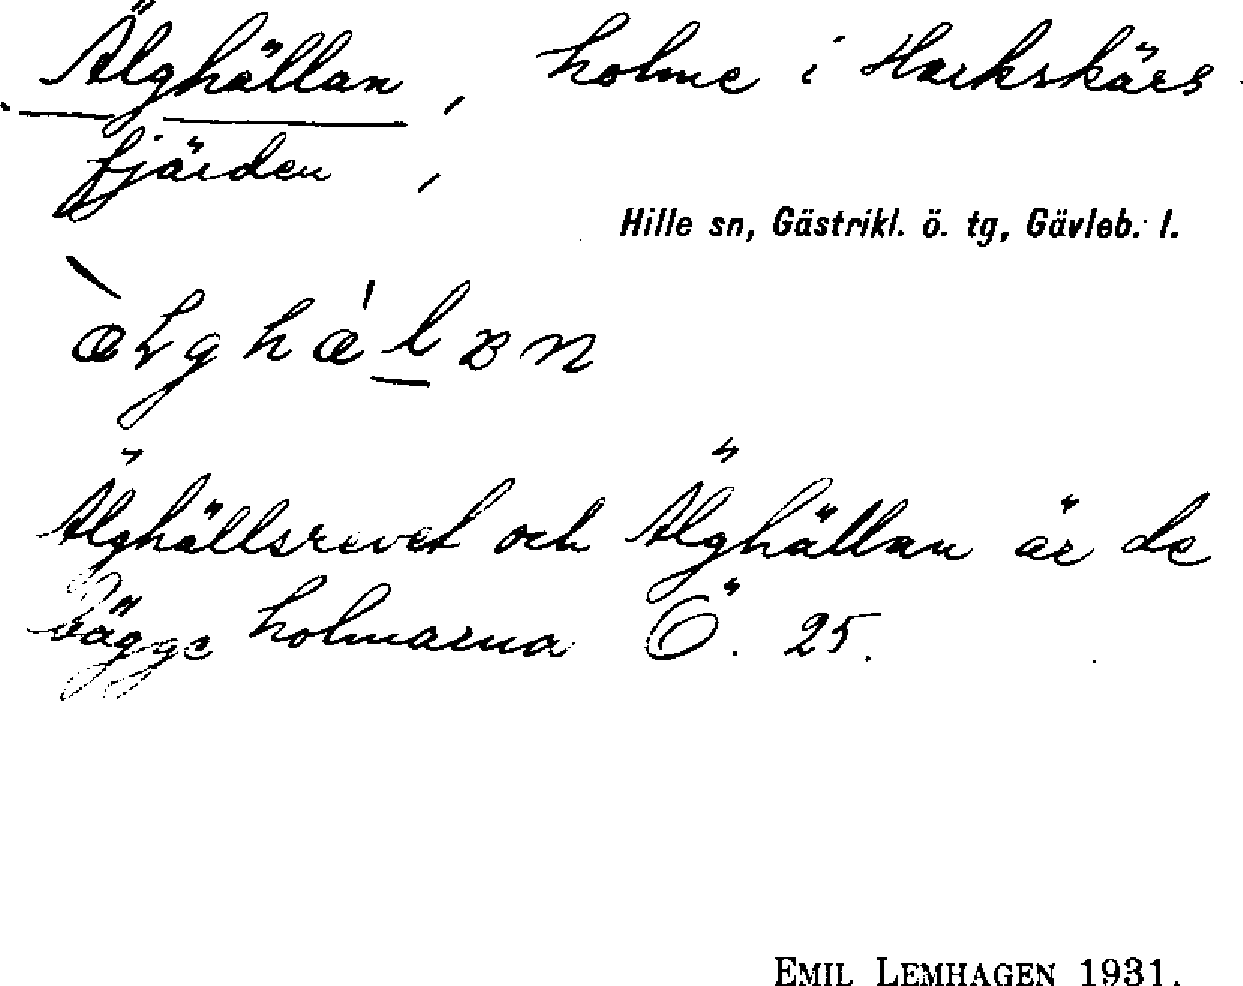 Älghällan, holme i Harkskärs
fjärden,
Hille sn, Gästrikl. ö. tg, Gävleb. l.
Älghällsrevet och Älghällan är de
bägge holmarna Ö. 25.
EMIL LEMHAGEN 1931.